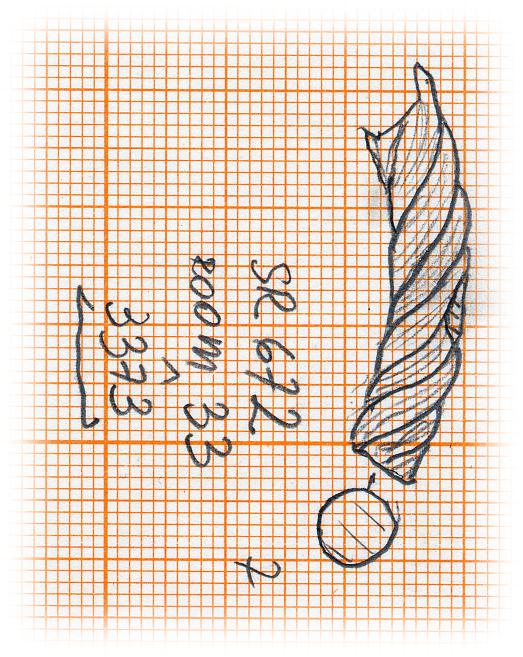 SR 672
room 33
3373
2